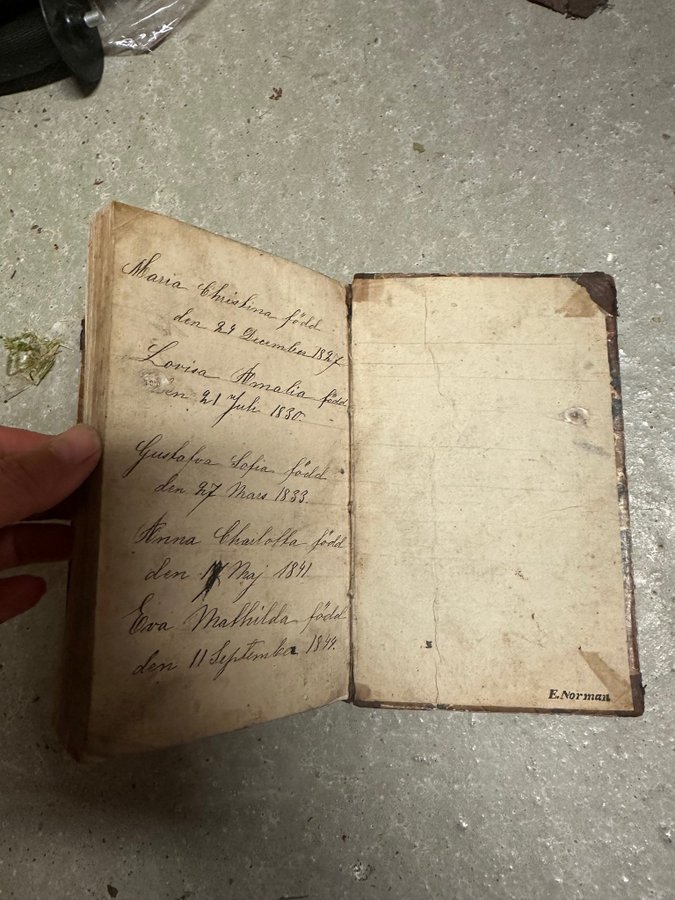 Maria Christina född
den 24 December 1827
Lovisa Amalia född
den 21 Juli 1830.
Gustafva Sofia född
den 27 Mars 1833.
Anna Charlotta född
den Maj 1841.
Eva Mathilda född
den 11 September 1844.
E. Norman